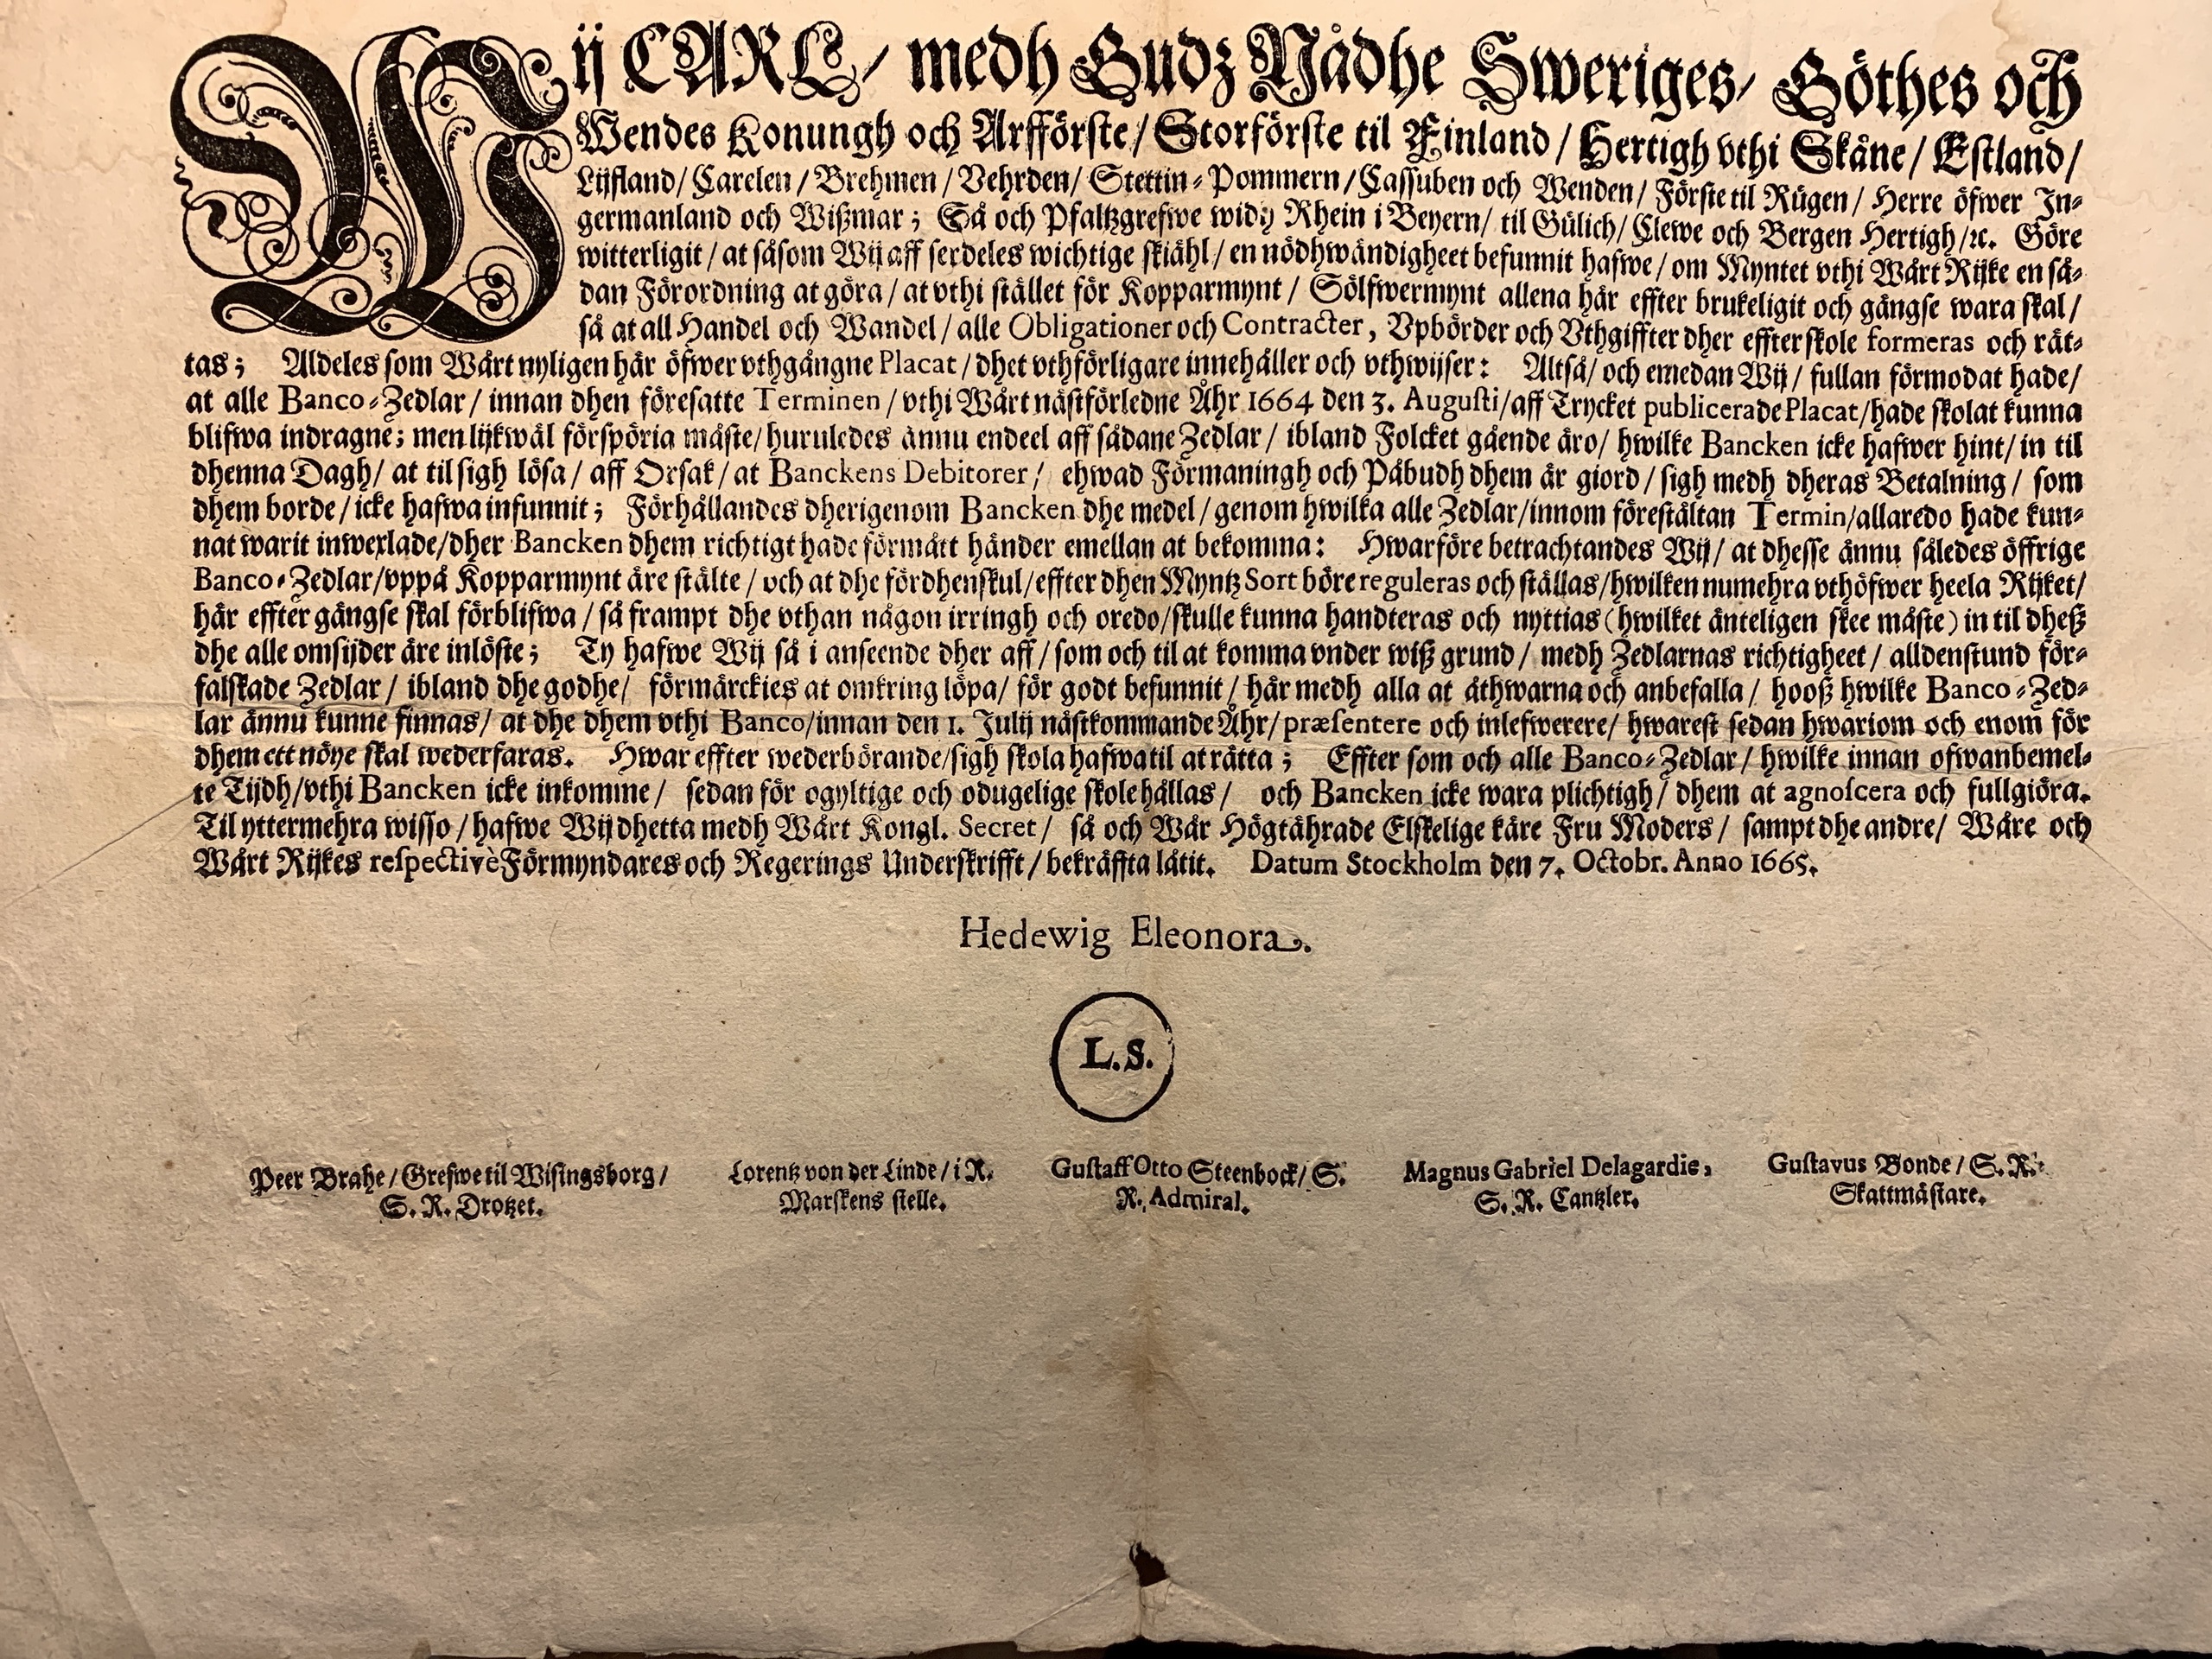 Wij CARL/ medh Gudz Nådhe Sweriges/ Göthes och
Wendes Konungh och Arfförste/ Storförste til Finland/ Hertigh vthi Skåne/ Estland/
Lijfland/ Carelen/ Brehmen/ Vehrden/ Stettin-Pommern/ Cassuben och Wenden/ Förste til Rügen/ Herre öfwer In-
germanland och Wißmar; Så och Pfaltzgrefwe widh Rhein i Beyern/ til Gülich/ Clewe och Bergen Hertigh/ ꝛc. Göre
witterligit/ at såsom Wij aff serdeles wichtige skiähl/ en nödhwändigheet befunnit hafwe/ om Myntet vthi Wårt Rijke en så-
dan Förordning at göra/ at vthi stället för Kopparmynt/ Sölfwermynt allena här effter brukeligit och gängse wara skal/
så at all Handel och Wandel/ alle Obligationer och Contracter, Vpbörder och Vthgiffter dher effter skole formeras och rät-
tas; Aldeles som Wårt nyligen här öfwer vthgångne Placat/ dhet vthförligare innehåller och vthwijser: Altså/ och emedan Wij/ fullan förmodat hade/
at alle Banco-Zedlar/ innan dhen föresatte Terminen/ vthi Wårt nästförledne Åhr 1664 den 3. Augusti/ aff Trycket publicerade Placat/ hade skolat kunna
blifwa indragne; men lijkwäl förspöria måste/ huruledes ännu endeel aff sådane Zedlar/ ibland Folcket gående äro/ hwilke Bancken icke hafwer hint/ in til
dhenna Dagh/ at til sigh lösa/ aff Orsak/ at Banckens Debitorer/ ehwad Förmaningh och Påbudh dhem är giord/ sigh medh dheras Betalning/ som
dhem borde/ icke hafwa infunnit; Förhållandes dherigenom Bancken dhe medel/ genom hwilka alle Zedlar/ innom förestältan Termin/ allaredo hade kun-
nat warit inwexlade/ dher Bancken dhem richtigt hade förmått händer emellan at bekomma: Hwarföre betrachtandes Wij/ at dhesse ännu således öffrige
Banco-Zedlar/ vppå Kopparmynt äre stälte/ och at dhe fördhenskul/ effter dhen Myntz Sort böre reguleras och ställas/ hwilken numehra vthöfwer heela Rijket/
här effter gängse skal förblifwa/ så frampt dhe vthan någon irringh och oredo/ skulle kunna handteras och nyttias (hwilket änteligen skee måste) in til dheß
dhe alle omsijder äre inlöste; Ty hafwe Wij så i anseende dher aff/ som och til at komma vnder wiß grund/ medh Zedlarnas richtigheet/ alldenstund för-
falskade Zedlar/ ibland dhe godhe/ förmärckies at omkring löpa/ för godt befunnit/ här medh alla at åthwarna och anbefalla/ hooß hwilke Banco-Zed-
lar ännu kunne finnas/ at dhe dhem vthi Banco/ innan den 1. Julij nästkommande Åhr/ præsentere och inlefwerere/ hwarest sedan hwariom och enom för
dhem ett nöye skal wederfaras. Hwar effter wederbörande/ sigh skola hafwa til at rätta; Effter som och alle Banco-Zedlar/ hwilke innan ofwanbemel-
te Tijdh/ vthi Bancken icke inkomme/ sedan för ogyltige och odugelige skole hållas/ och Bancken icke wara plichtigh/ dhem at agnoscera och fullgiöra.
Til yttermehra wisso/ hafwe Wij dhetta medh Wårt Kongl. Secret/ så och Wår Högtährade Elskelige käre Fru Moders/ sampt dhe andre/ Wåre och
Wårt Rijkes respectivè Förmyndares och Regerings Underskrifft/ bekräffta låtit. Datum Stockholm den 7. Octobr. Anno 1665.
Hedewig Eleonora.
L.S.
Peer Brahe/ Grefwe til Wisingsborg/
S. R. Drotzet.
Lorentz von der Linde/ i R.
Marskens stelle.
Gustaff Otto Steenbock/ S.
R. Admiral.
Magnus Gabriel Delagardie,
S. R. Cantzler.
Gustavus Bonde/ S. R.
Skattmästare.